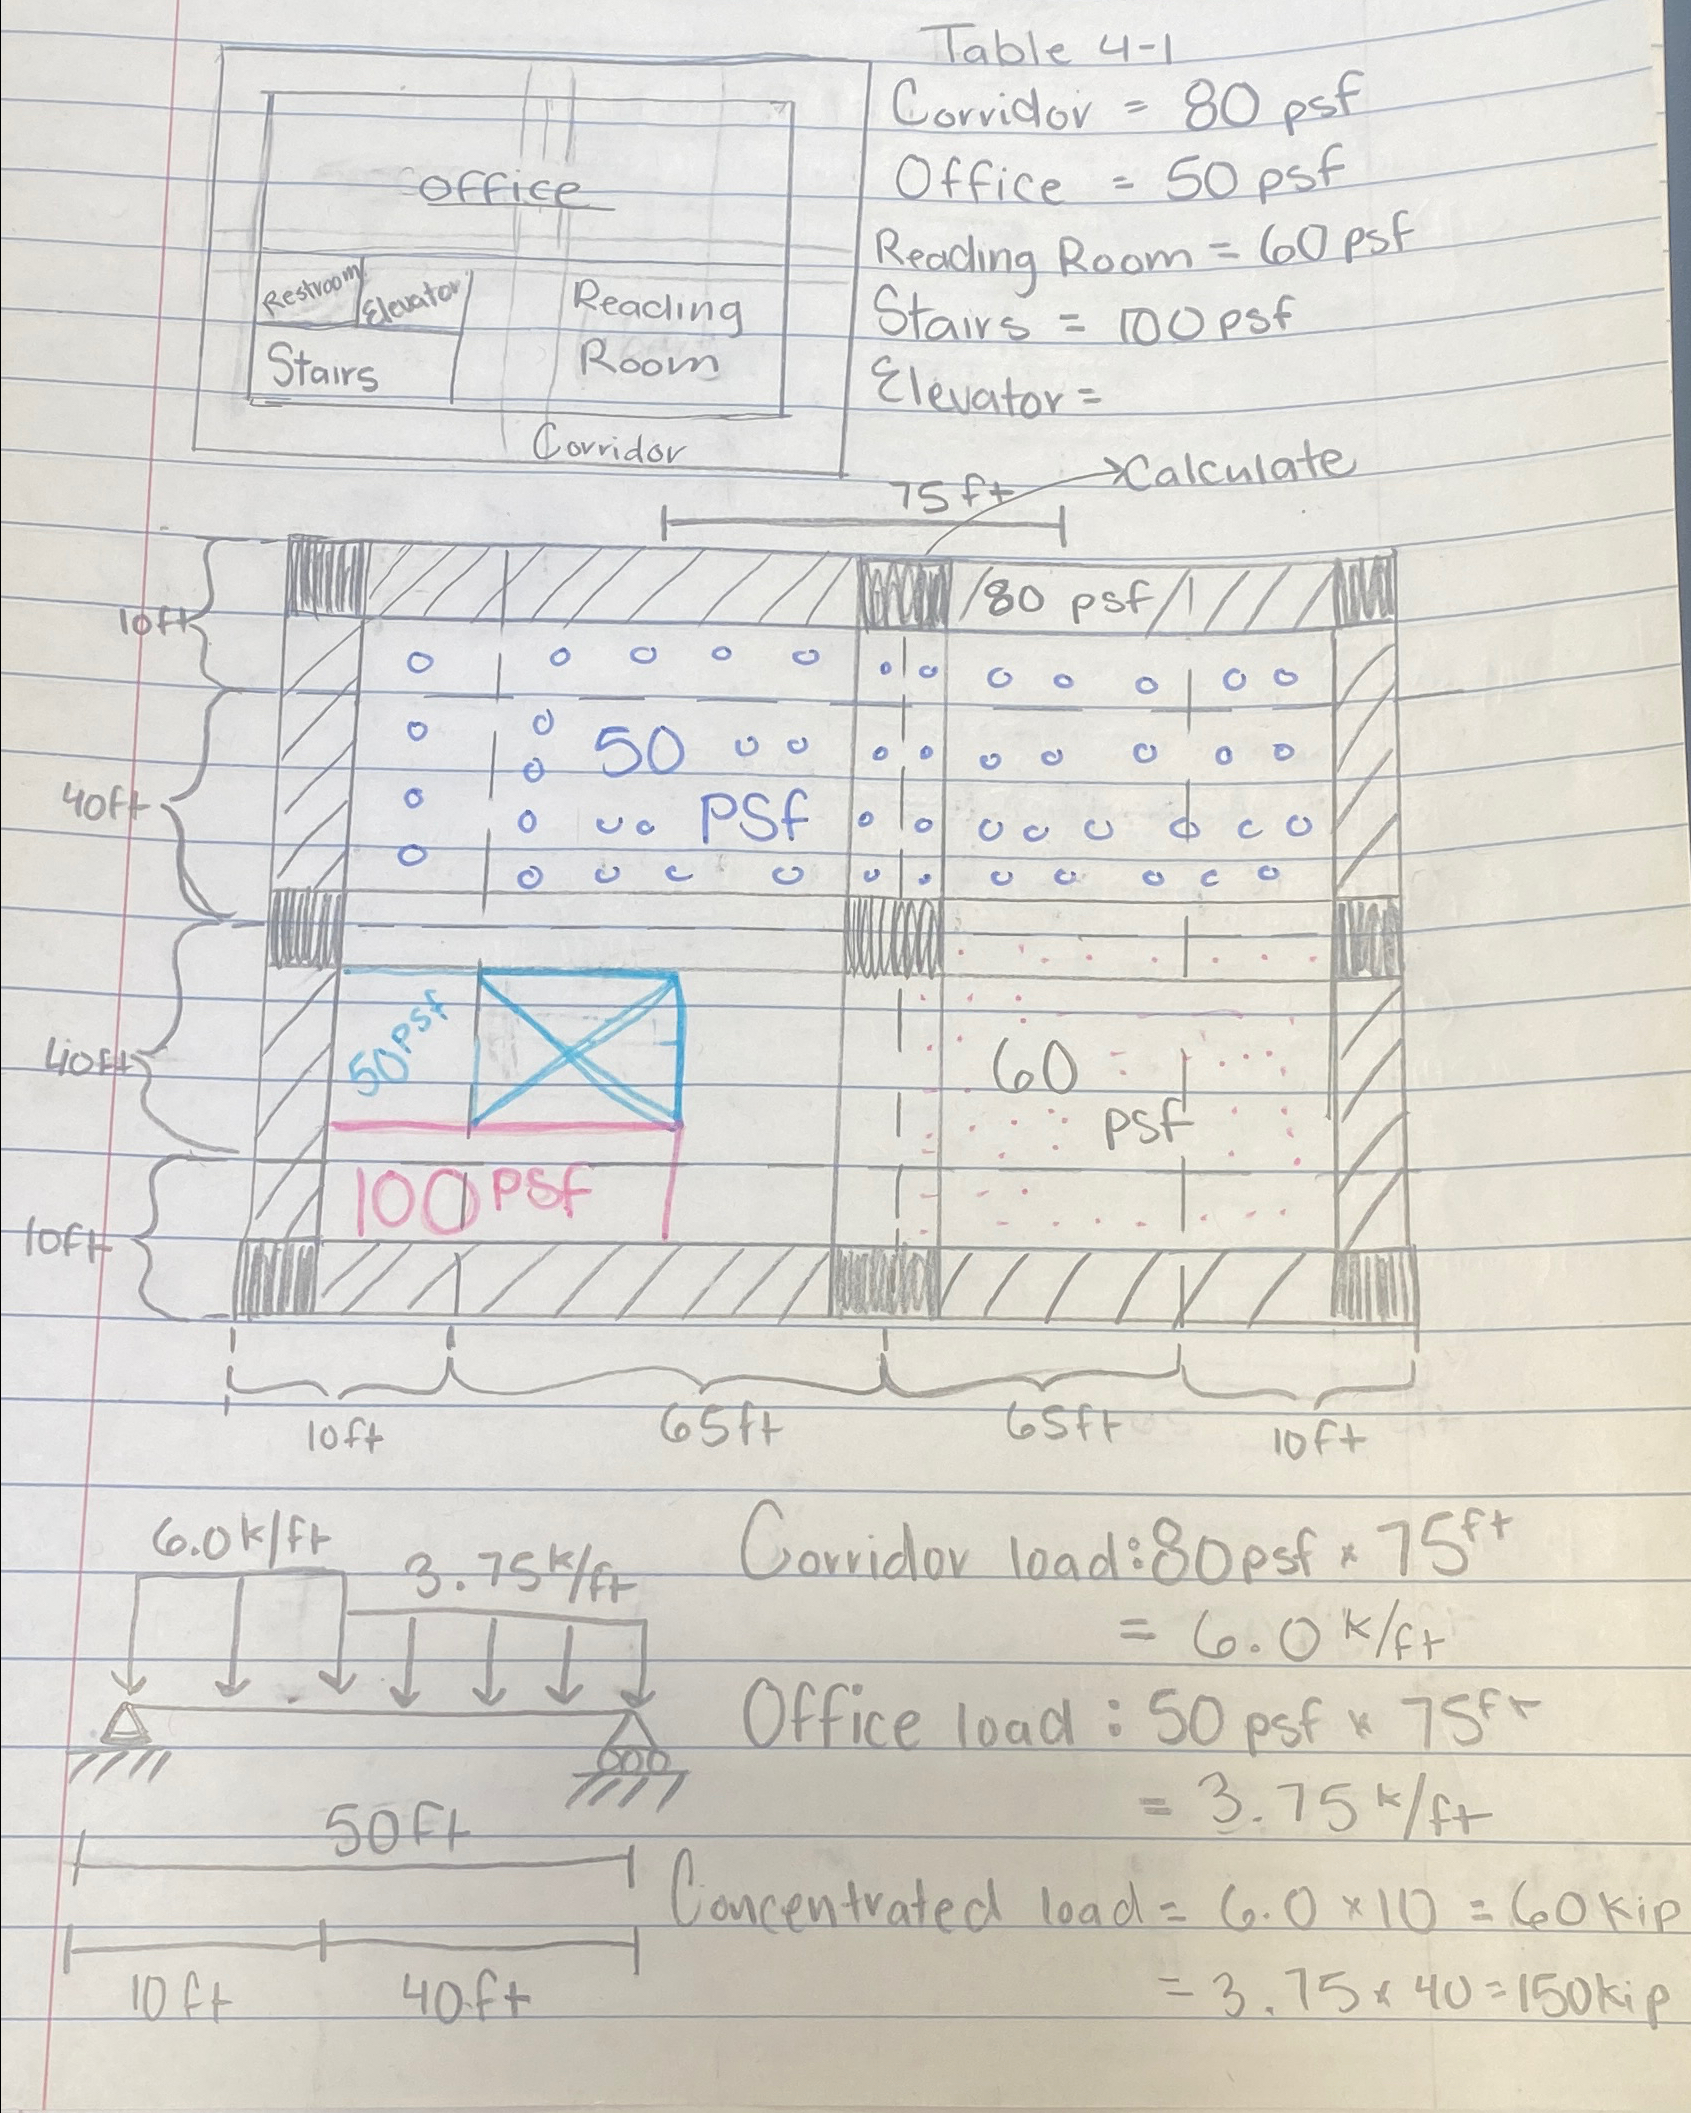 Table 4-1
Corridor = 80 psf
Office = 50 psf
Reading Room = 60 psf
Stairs = 100 psf
Elevator =
Office
Restroom
Elevator
Reading
Room
Stairs
Corridor
Calculate
75 ft
80 psf
10ft
50
psf
40ft
50 psf
60
psf
40ft
100 psf
10ft
10ft
65ft
65ft
10ft
6.0 k/ft
3.75 k/ft
50ft
10ft
40ft
Corridor load: 80 psf × 75 ft
= 6.0 k/ft
Office load: 50 psf × 75 ft
= 3.75 k/ft
Concentrated load = 6.0 × 10 = 60 kip
= 3.75 × 40 = 150 kip